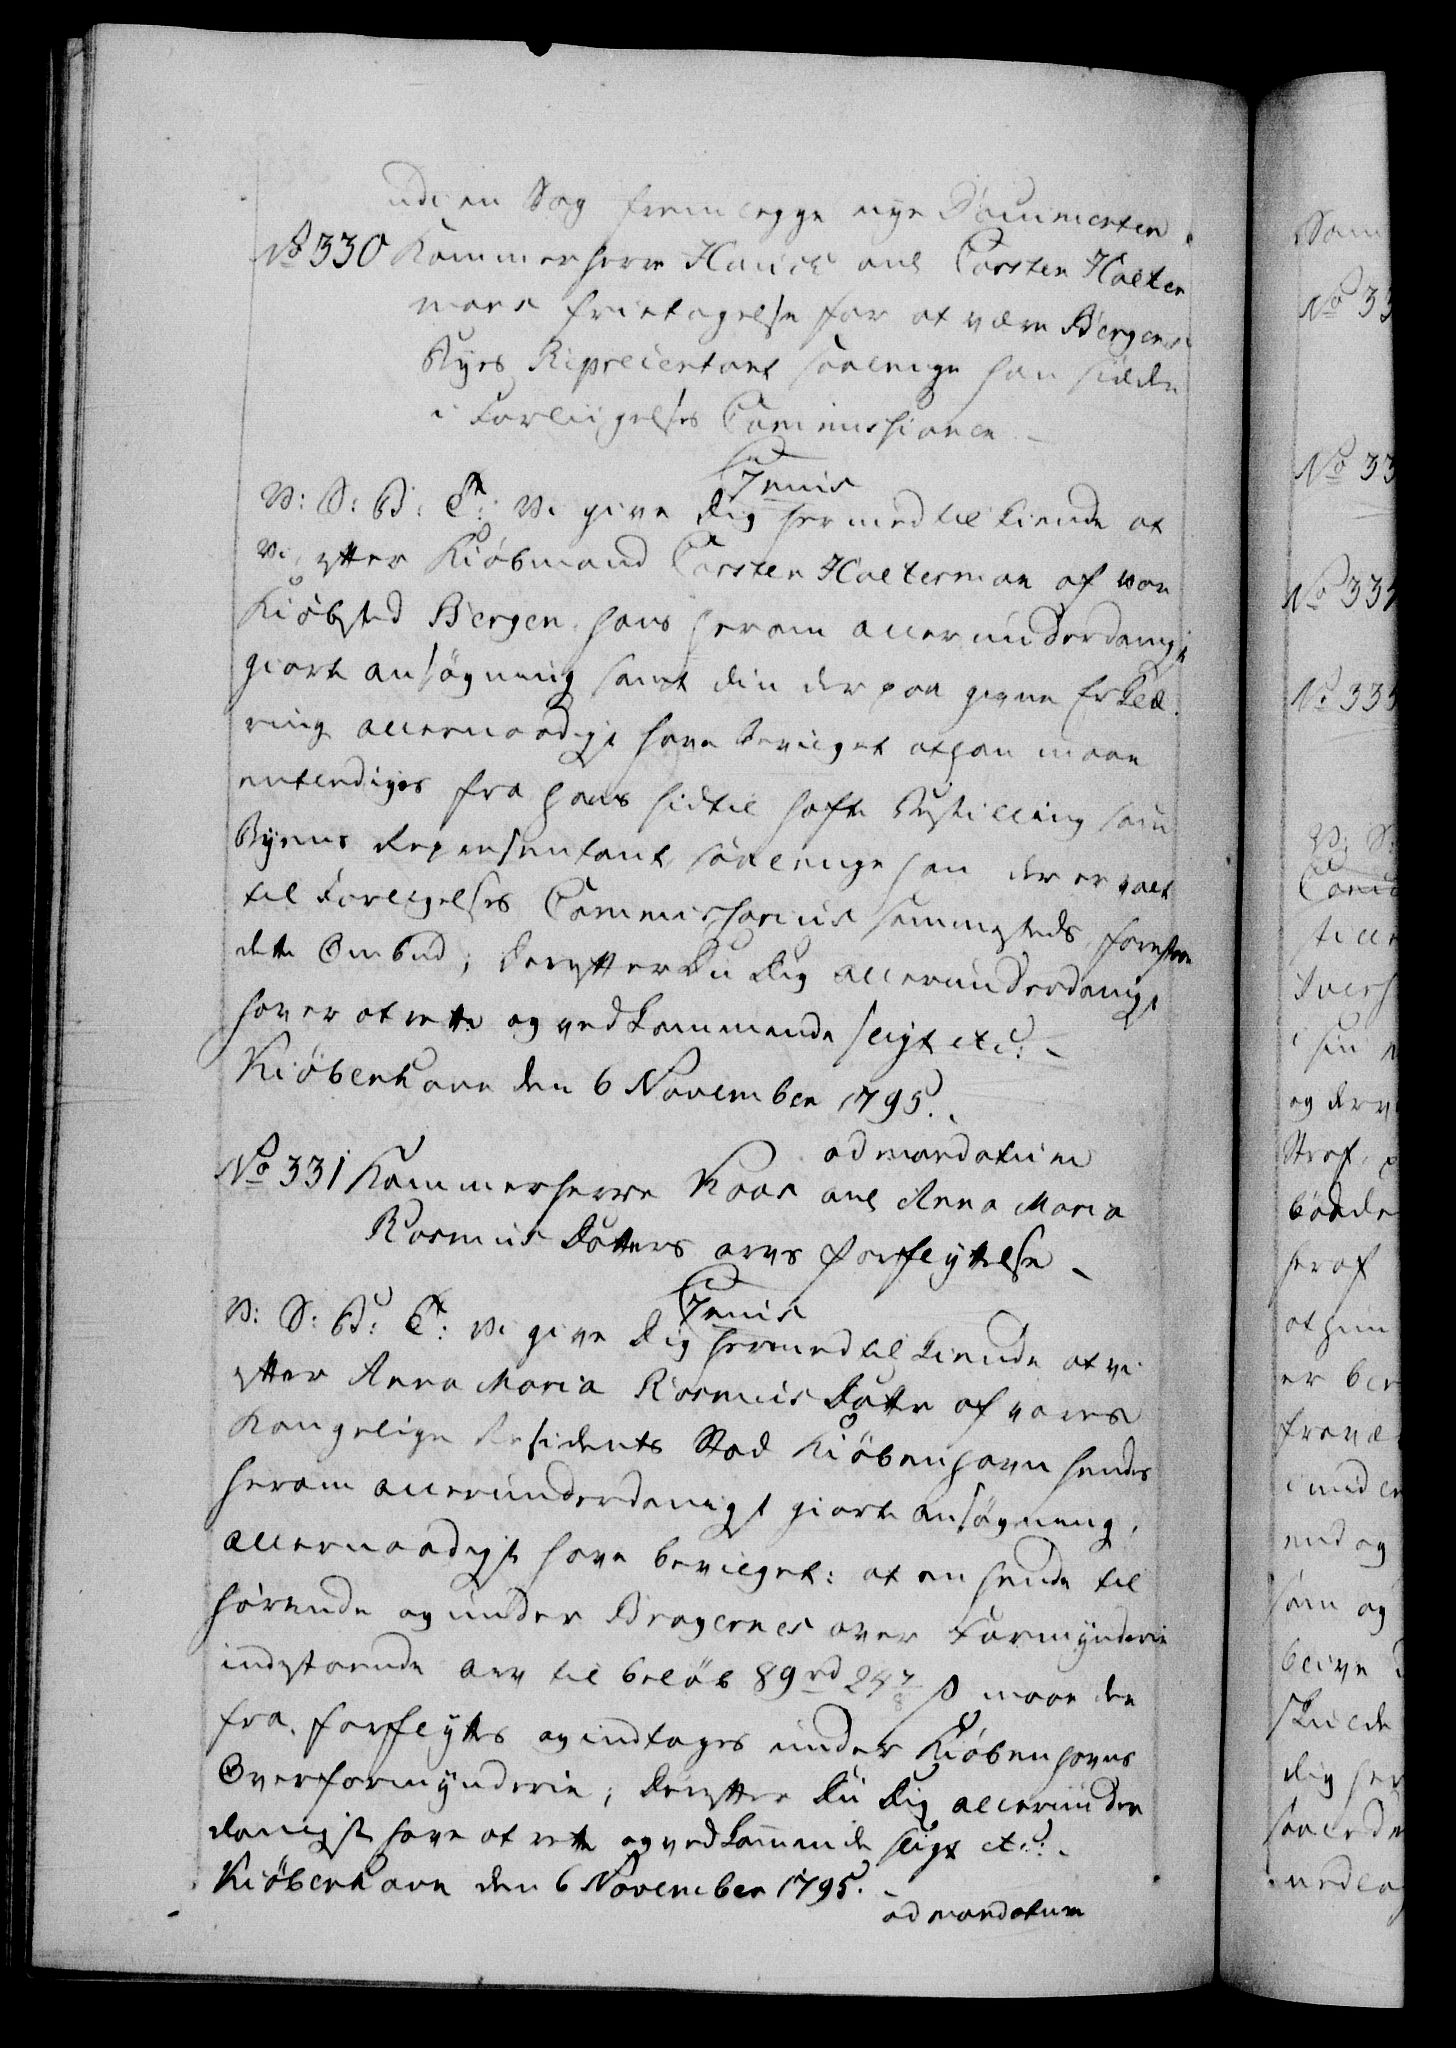 udi en Sag fremlegge nye Documenter.
No 330 Kammerherre Hauch anl Carsten Holter
mans fritagelse for at være Bergens
Byes Repreientant saalenge han sidder
i Forliigelses Commissionen –
Genis
V: S: G: T: Vi give Dig hermed tilkiende at
Vi, efter Kiøbmand Carsten Holterman af vor
Kiøbsted Bergen, hans herom allerunderdanigst
giorte ansøgning samt din derpaa givne Erklæ
ring allernaadigst have bevilget at han maae
entlediges fra hans hidtil hafte Bestilling som
Byens Representant, saalenge han der er valt
til Forligelses Commissarius sammesteds, forestaar
dette Ombud; Derefter Du Dig allerunderdanigst
haver at rette og vedkommende sligt etc: –
Kiøbenhavn den 6 November 1795.
ad mandatum
No 331 Kammerherre Kaas anl Anna Maria
Rasmus Datters arvs forflyttelse –
Genis
V: S: G: T: Vi give Dig hermed tilkiende at vi
efter Anna Maria Rasmus Datter af vores
Kongelige Residents Stad Kiøbenhavn hendes
herom allerunderdanigst giorte ansøgning,
allernaadigst have bevilget: at en hende til
hørende og under Bragernes over Formynderie
indestaaende Arv til beløb 89 rd 24 7/8 ß maae der
fra forflyttes og indtages under Kiøbenhavns
Overformynderie; Derefter Du Dig allerunder
danigst have at rette og vedkommende sligt etc: –
Kiøbenhavn den 6 November 1795.
ad mandatum